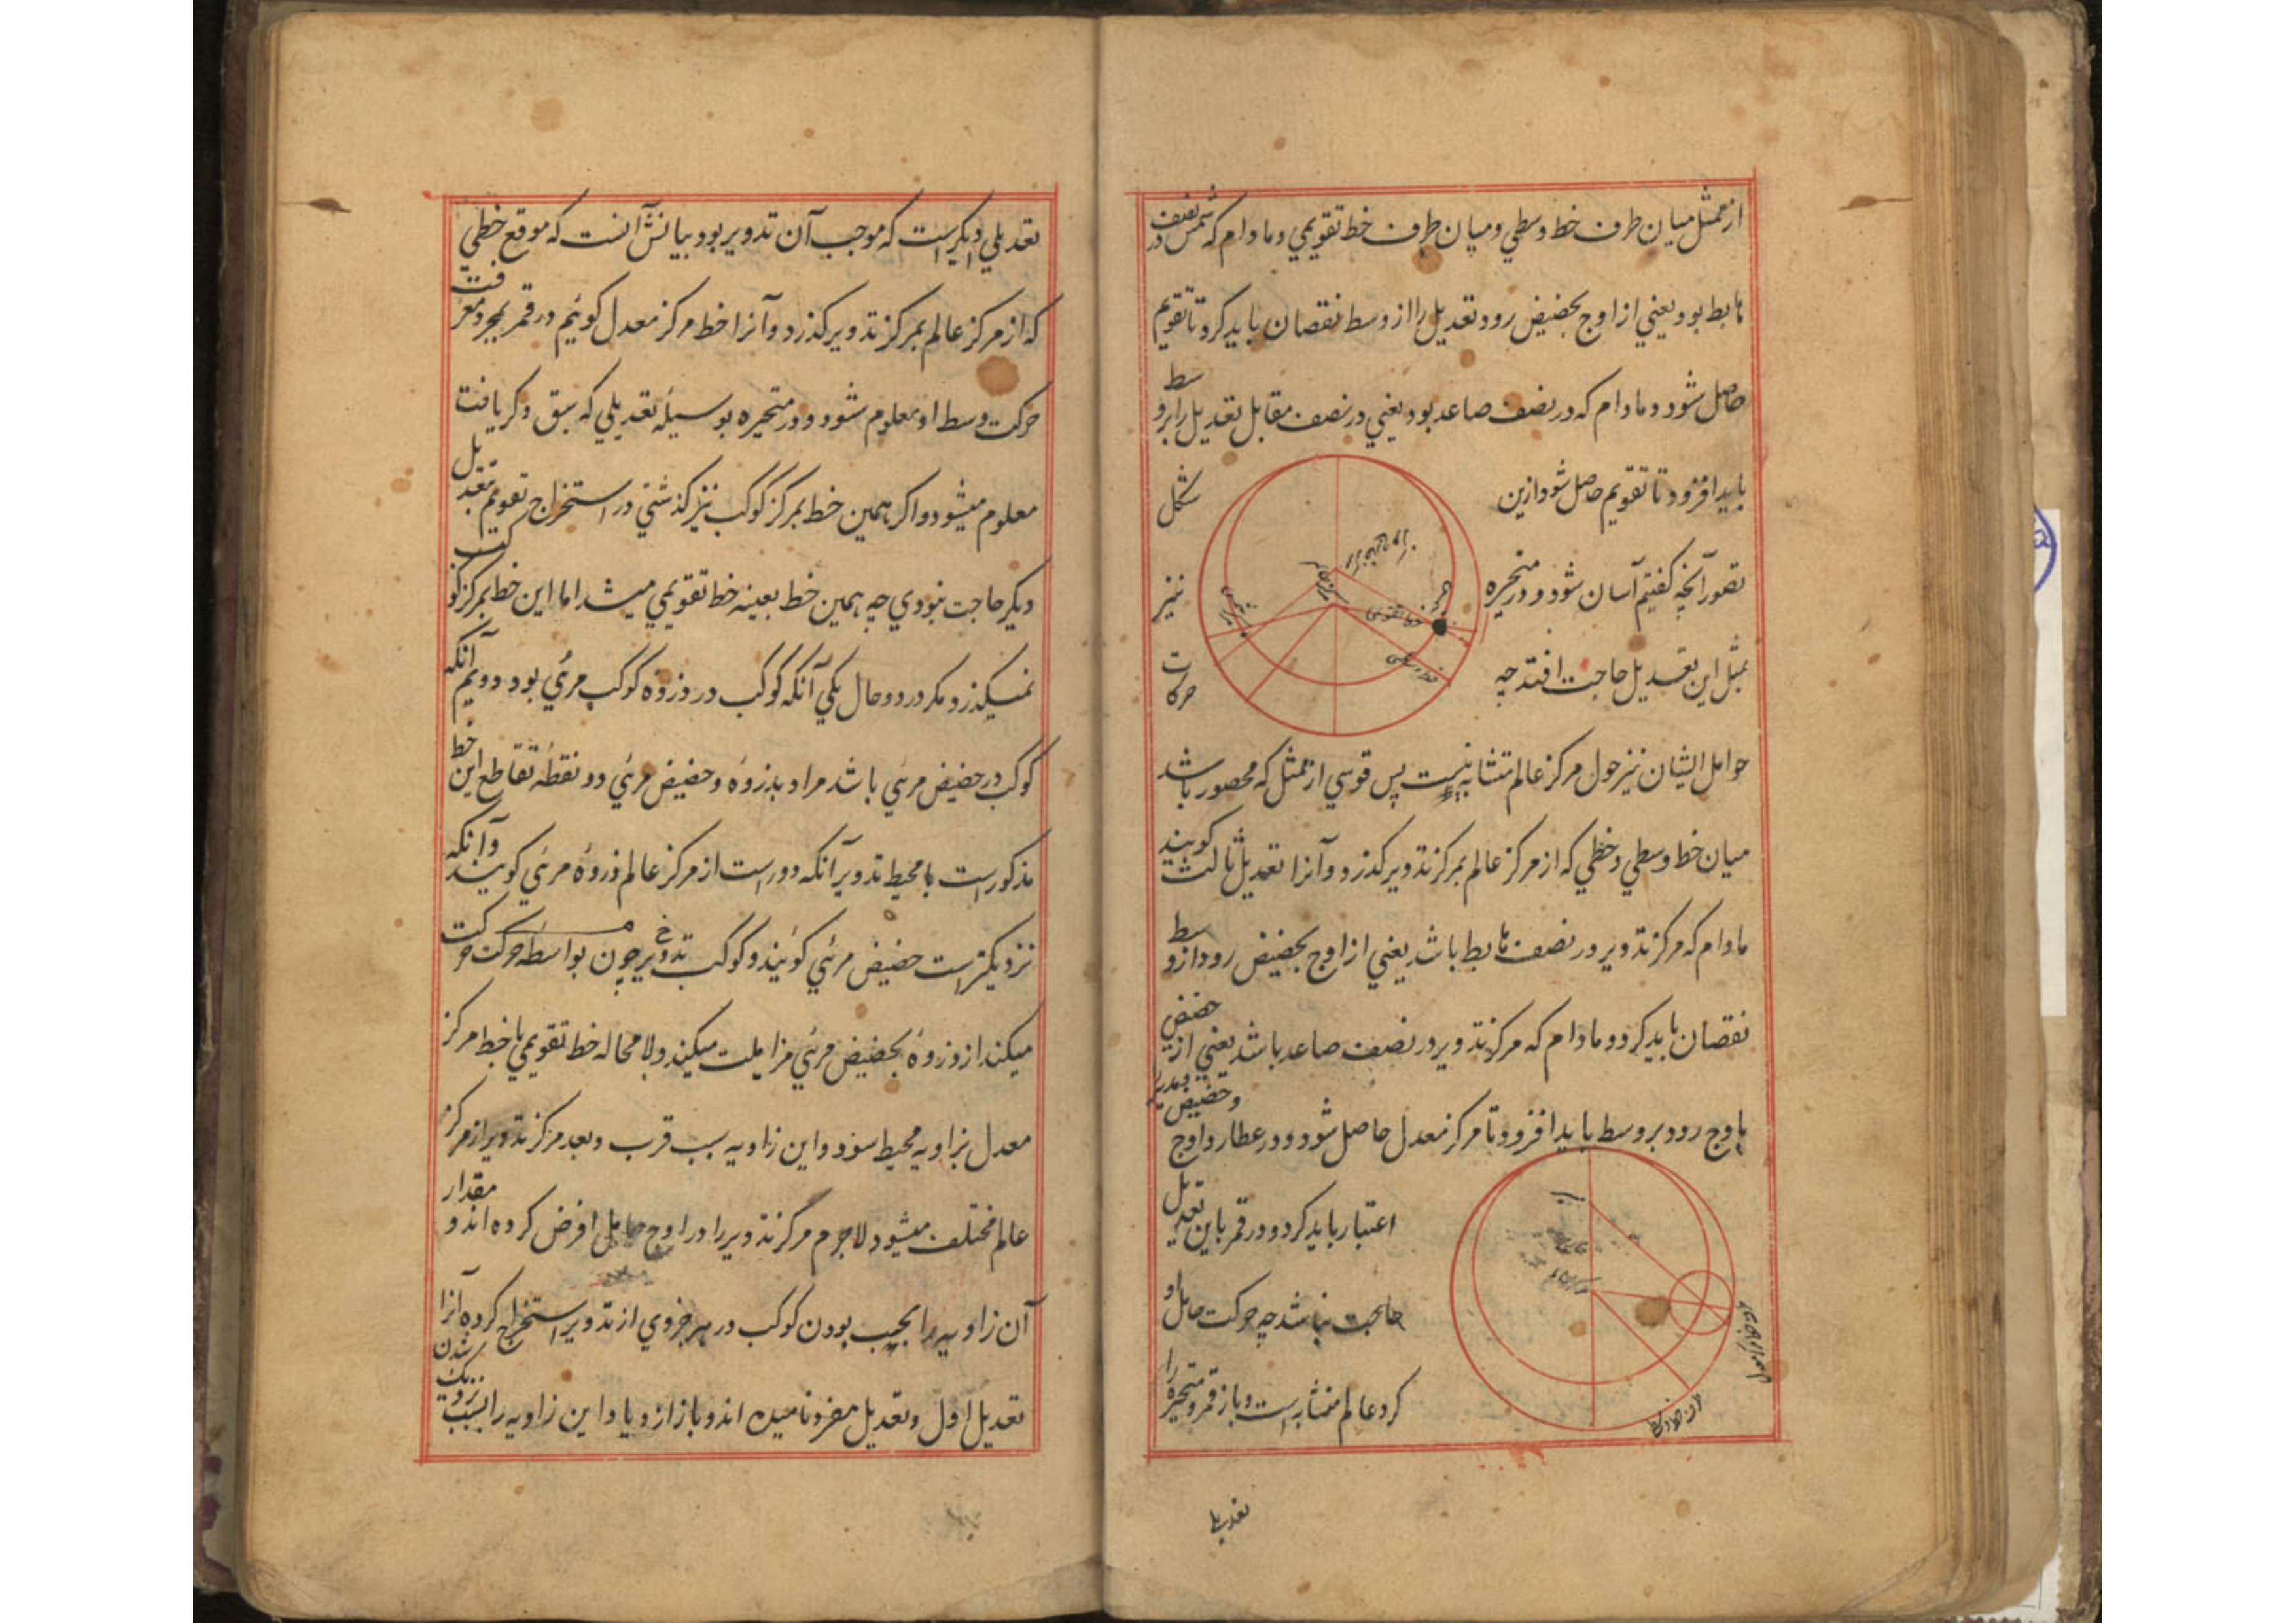 از ممثل میان طرف خط وسطي و میان طرف خط تقویمي و مادام که شمس در نصف
هابط بود یعني از اوج بحضیض رود تعدیل را از وسط نقصان باید کرد تا تقویم
حاصل شود و مادام که در نصف صاعد بود یعني در نصف مقابل تعدیل را بر وسط
باید افزود تا تقویم حاصل شود ازین شکل
تصور آنچه کفتیم آسان شود و در متحیره نیز
بمثل این تعدیل حاجت افتد چه حرکات
حوامل ایشان نیز حول مرکز عالم متشابه نیست پس قوسي از ممثل که محصور باشد
میان خط وسطي و خطي که از مرکز عالم بمرکز تدویر کذرد و آنرا تعدیل ثالث کویند
مادام که مرکز تدویر در نصف هابط باشد یعني از اوج بحضیض رود از وسط
نقصان باید کرد و مادام که مرکز تدویر در نصف صاعد باشد یعني از حضیض
باوج رود بر وسط باید افزود تا مرکز معدل حاصل شود و در عطارد اوج و حضیض مدیر
اعتبار باید کرد و در قمر باین تعدیل
حاجت نباشد چه حرکت حامل او
کرد عالم متشابه است و باز قمر و متحیره را
خط تقویمي
خط وسطي
مرکز عالم
تعدیلي
تعدیلي دیکر است که موجب آن تدویر بود بیانش آنست که موقع خطي
که از مرکز عالم بمرکز تدویر کذرد و آنرا خط مرکز معدل کوئیم در قمر بمجرد معرفت
حرکت وسط او معلوم شود و در متحیره بوسیلهٔ تعدیلي که سبق ذکر یافت
معلوم میشود و اکر همین خط بمرکز کوکب نیز کذشتي در استخراج تقویم بتعدیل
دیکر حاجت نبودي چه همین خط بعینه خط تقویمي میشد اما این خط بمرکز کوکب
نمیکذرد مکر در دو حال یکي آنکه کوکب در ذروهٔ کوکب مرئي بود دویم آنکه
کوکب در حضیض مرئي باشد مراد بذروهٔ و حضیض مرئي دو نقطهٔ تقاطع این خط
مذکور است با محیط تدویر آنکه دور است از مرکز عالم ذروهٔ مرئي کویند و آنکه
نزدیکتر است حضیض مرئي کوئیند و کوکب تدویر چون بواسطهٔ حرکت حرکت
میکند از ذروهٔ بحضیض مرئي مزایلت میکند و لا محاله خط تقویمي با خط مرکز
معدل بزاویه محیط شود و این زاویه بسبب قرب و بعد مرکز تدویر از مرکز
عالم مختلف میشود لاجرم مرکز تدویر را در اوج حامل فرض کرده اند و مقدار
آن زاویه را بحسب بودن کوکب در هر جزوي از تدویر استخراج کرده آنرا
تعدیل اول و تعدیل مفرد نامیده اند و باز ازدیاد این زاویه را بسبب نزدیک شدن